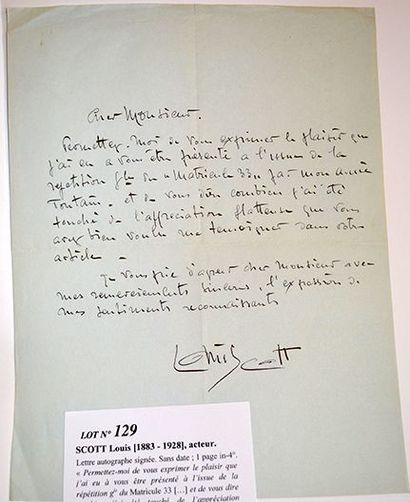 Cher Monsieur.
Permettez-moi de vous exprimer le plaisir que
j'ai eu a vous être présenté a l'issue de la
répétition gle du "Matricule 33" par mon ami
Toutain - et de vous dire combien j'ai été
touché de l'appréciation flatteuse que vous
avez bien voulu me temoigner dans votre
article -
Je vous prie d'agréer cher Monsieur avec
mes remerciements sincères, l'expression de
mes sentiments reconnaissants
Louis Scott
LOT N° 129
SCOTT Louis [1883 - 1928], acteur.
Lettre autographe signée. Sans date ; 1 page in-4°.
« Permettez-moi de vous exprimer le plaisir que
j'ai eu à vous être présenté à l'issue de la
répétition gle du Matricule 33 [...] et de vous dire
touché de l'appréciation